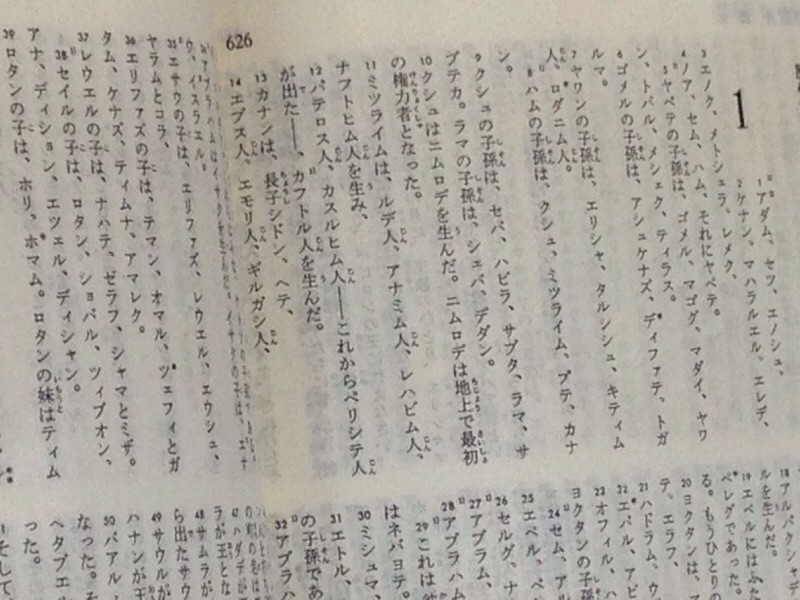 626
1
1アダム、セツ、エノシュ、
2ケナン、マハラルエル、エレデ、
3エノク、メトシェラ、レメク、
4ノア、セム、ハム、それにヤペテ。
5ヤペテの子孫は、ゴメル、マゴグ、マダイ、ヤワ
ン、トバル、メシェク、ティラス。
6ゴメルの子孫は、アシュケナズ、ディファテ、トガ
ルマ。
7ヤワンの子孫は、エリシャ、タルシシュ、キティム
人、ロダニム人。
8ハムの子孫は、クシュ、ミツライム、プテ、カナ
ン。
9クシュの子孫は、セバ、ハビラ、サブタ、ラマ、サ
ブテカ。ラマの子孫は、シェバ、デダン。
10クシュはニムロデを生んだ。ニムロデは地上で最初
の権力者となった。
11ミツライムは、ルデ人、アナミム人、レハビム人、
ナフトヒム人を生み、
12パテロス人、カスルヒム人――これからペリシテ人
が出た――、カフトル人を生んだ。
13カナンは、長子シドン、ヘテ、
14エブス人、エモリ人、ギルガシ人、
ウ、イスラエル。
35エサウの子は、エリファズ、レウエル、エウシュ、
ヤラムとコラ、
36エリファズの子は、テマン、オマル、ツェフィとガ
タム、ケナズ、ティムナ、アマレク。
37レウエルの子は、ナハテ、ゼラフ、シャマとミザ。
38セイルの子は、ロタン、ショバル、ツィブオン、
アナ、ディション、エツェル、ディシャン。
39ロタンの子は、ホリ、ホマム。ロタンの妹はティム
18アルパクシャデ
ルを生んだ。
19エベルにはふた
ペレグであった。
る。もうひとりの
20ヨクタンは、
テ、エラフ、
21ハドラム、ウ
22エバル、アビ
23オフィル、ハ
ヨクタンの子孫
24セム、アル
25エベル、ペ
26セルグ、ナ
27アブラム、
28アブラハム
29これは
はネバヨテ。
30ミシュマ、
31エトル、
の子孫であ
32アブラハ
47ハダデが
ラが王とな
48サムラが
ら出たサウ
49サウルが
ハナンが王
50バアル・
なった。
ヘタブエル
った。
そして